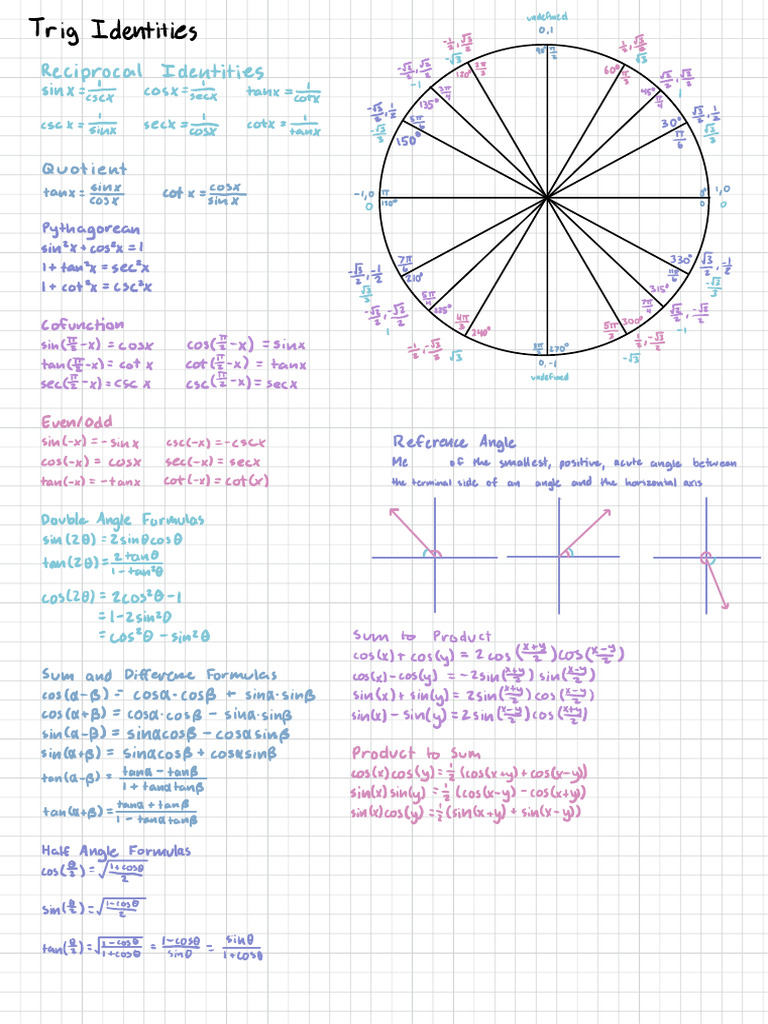 Trig Identities
Reciprocal Identities
sin x = 1/csc x   cos x = 1/sec x   tan x = 1/cot x
csc x = 1/sin x   sec x = 1/cos x   cot x = 1/tan x
Quotient
tan x = sin x/cos x   cot x = cos x/sin x
Pythagorean
sin²x + cos²x = 1
1 + tan²x = sec²x
1 + cot²x = csc²x
Cofunction
sin(π/2 - x) = cos x   cos(π/2 - x) = sin x
tan(π/2 - x) = cot x   cot(π/2 - x) = tan x
sec(π/2 - x) = csc x   csc(π/2 - x) = sec x
Even/odd
sin(-x) = - sin x   csc(-x) = -csc x
cos(-x) = cos x   sec(-x) = sec x
tan(-x) = -tan x   cot(-x) = cot(x)
Double Angle Formulas
sin(2θ) = 2sinθcosθ
tan(2θ) = 2tanθ/1 - tan²θ
cos(2θ) = 2cos²θ - 1
= 1 - 2sin²θ
= cos²θ - sin²θ
Sum and Difference Formulas
cos(α-β) = cosα·cosβ + sinα·sinβ
cos(α+β) = cosα·cosβ - sinα·sinβ
sin(α-β) = sinαcosβ - cosαsinβ
sin(α+β) = sinαcosβ + cosαsinβ
tan(α-β) = tanα - tanβ/1 + tanαtanβ
tan(α+β) = tanα + tanβ/1 - tanαtanβ
Half Angle Formulas
cos(θ/2) = √(1+cosθ/2)
sin(θ/2) = √(1-cosθ/2)
tan(θ/2) = √(1-cosθ/1+cosθ) = 1-cosθ/sinθ = sinθ/1+cosθ
undefined
0,1
90° π/2
1/2, √3/2
√3
60° π/3
√2/2, √2/2
1
45° π/4
√3/2, 1/2
√3/3
30° π/6
1,0
0
0° 0
330° 11π/6
√3/2, -1/2
-√3/3
315° 7π/4
√2/2, -√2/2
-1
300° 5π/3
1/2, -√3/2
-√3
3π/2 270°
0, -1
undefined
4π/3 240°
-1/2, -√3/2
√3
5π/4 225°
-√2/2, -√2/2
1
7π/6 210°
-√3/2, -1/2
√3/3
-1,0
0
π 180°
-√3/2, 1/2
-√3/3
5π/6 150°
-√2/2, √2/2
-1
3π/4 135°
-1/2, √3/2
-√3
120° 2π/3
Reference Angle
Me of the smallest, positive, acute angle between
the terminal side of an angle and the horizontal axis
Sum to Product
cos(x) + cos(y) = 2 cos(x+y/2) cos(x-y/2)
cos(x) - cos(y) = -2sin(x+y/2) sin(x-y/2)
sin(x) + sin(y) = 2sin(x+y/2) cos(x-y/2)
sin(x) - sin(y) = 2sin(x-y/2) cos(x+y/2)
Product to Sum
cos(x)cos(y) = 1/2 (cos(x+y) + cos(x-y))
sin(x) sin(y) = 1/2 (cos(x-y) - cos(x+y))
sin(x)cos(y) = 1/2 (sin(x+y) + sin(x-y))